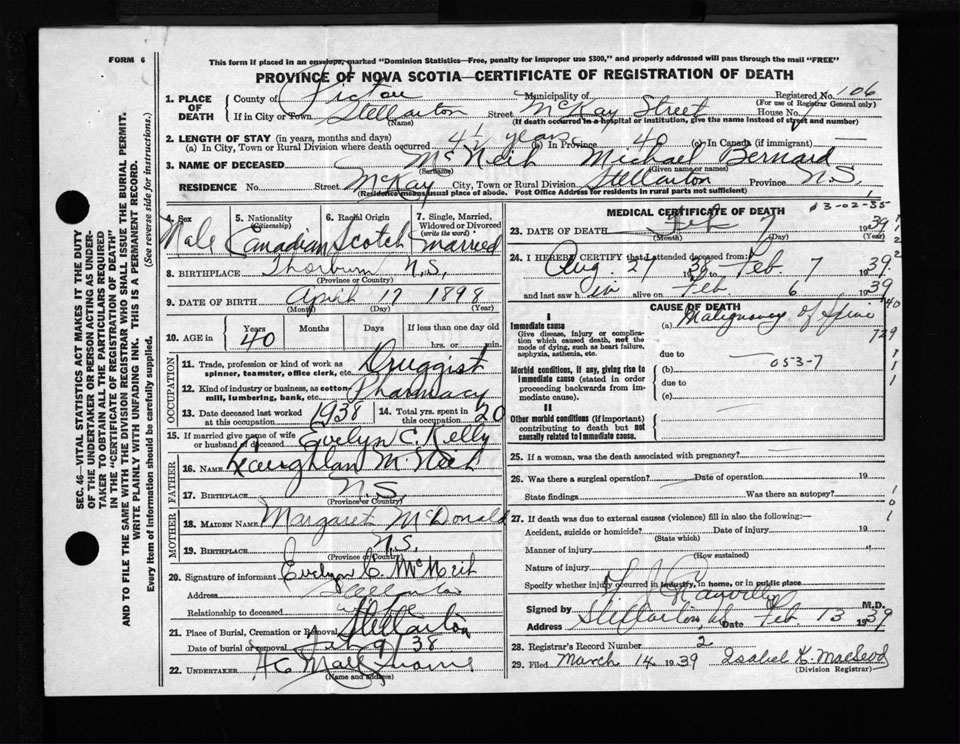 FORM 6
This form if placed in an envelope, marked "Dominion Statistics—Free, penalty for improper use $300," and properly addressed will pass through the mail "FREE"
PROVINCE OF NOVA SCOTIA—CERTIFICATE OF REGISTRATION OF DEATH
Registered No. 106
(For use of Registrar General only)
1. PLACE OF DEATH
County of Pictou Municipality of
If in City or Town Stellarton Street McKay Street House No.
(Name) (If death occurred in a hospital or institution, give the name instead of street and number)
2. LENGTH OF STAY (in years, months and days)
(a) In City, Town or Rural Division where death occurred 4½ years (b) In Province 40 (c) In Canada (if immigrant) —
3. NAME OF DECEASED McNeil Michael Bernard
(Surname) (Given name or names)
RESIDENCE No. Street McKay City, Town or Rural Division Stellarton Province N.S.
(Residence means usual place of abode. Post Office Address for residents in rural parts not sufficient)
4. Sex Male
5. Nationality (Citizenship) Canadian
6. Racial Origin Scotch
7. Single, Married, Widowed or Divorced (write the word) Married
8. BIRTHPLACE Thorburn N.S.
(Province or Country)
9. DATE OF BIRTH April 17 1898
(Month) (Day) (Year)
10. AGE in Years 40 Months Days If less than one day old
hrs. or min.
OCCUPATION
11. Trade, profession or kind of work as spinner, teamster, office clerk, etc. Druggist
12. Kind of industry or business, as cotton-mill, lumbering, bank, etc. Pharmacy
13. Date deceased last worked at this occupation 1938
14. Total yrs. spent in this occupation 20
15. If married give name of wife or husband of deceased Evelyn C. Kelly
FATHER
16. Name Laughlan McNeil
17. BIRTHPLACE N.S.
(Province or Country)
MOTHER
18. MAIDEN NAME Margaret McDonald
19. BIRTHPLACE N.S.
(Province or Country)
20. Signature of informant Evelyn C. McNeil
Address Stellarton
Relationship to deceased wife
21. Place of Burial, Cremation or Removal Stellarton
Date of burial or removal Feb 9 / 38
22. UNDERTAKER
(Name and address)
3-02-35
MEDICAL CERTIFICATE OF DEATH
23. DATE OF DEATH Feb 7 1939
(Month) (Day) (Year)
24. I HEREBY CERTIFY that I attended deceased from
Aug. 27 1938 to Feb. 7 1939
and last saw him alive on Feb. 6 1939
CAUSE OF DEATH
I
Immediate cause
Give disease, injury or complication which caused death, not the mode of dying, such as heart failure, asphyxia, asthenia, etc.
(a) Malignancy of Spine
due to
Morbid conditions, if any, giving rise to immediate cause (stated in order proceeding backwards from immediate cause).
(b) 053-7
due to
(c)
II
Other morbid conditions (if important) contributing to death but not causally related to immediate cause.
25. If a woman, was the death associated with pregnancy?
26. Was there a surgical operation? Date of operation 19
State findings Was there an autopsy?
27. If death was due to external causes (violence) fill in also the following:—
Accident, suicide or homicide? Date of injury 19
(State which)
Manner of injury
(How sustained)
Nature of injury
Specify whether injury occurred in industry, in home, or in public place
Signed by M.D.
Address Stellarton, Date Feb. 13 1939
28. Registrar's Record Number 2
29. Filed March 14 1939 Isabel K. MacLeod
(Division Registrar)
SEC. 46—VITAL STATISTICS ACT MAKES IT THE DUTY
OF THE UNDERTAKER OR PERSON ACTING AS UNDER-
TAKER TO OBTAIN ALL THE PARTICULARS REQUIRED
IN THE "CERTIFICATE OF REGISTRATION OF DEATH"
AND TO FILE THE SAME WITH THE DIVISION REGISTRAR WHO SHALL ISSUE THE BURIAL PERMIT.
WRITE PLAINLY WITH UNFADING INK. THIS IS A PERMANENT RECORD.
Every item of information should be carefully supplied. (See reverse side for instructions.)